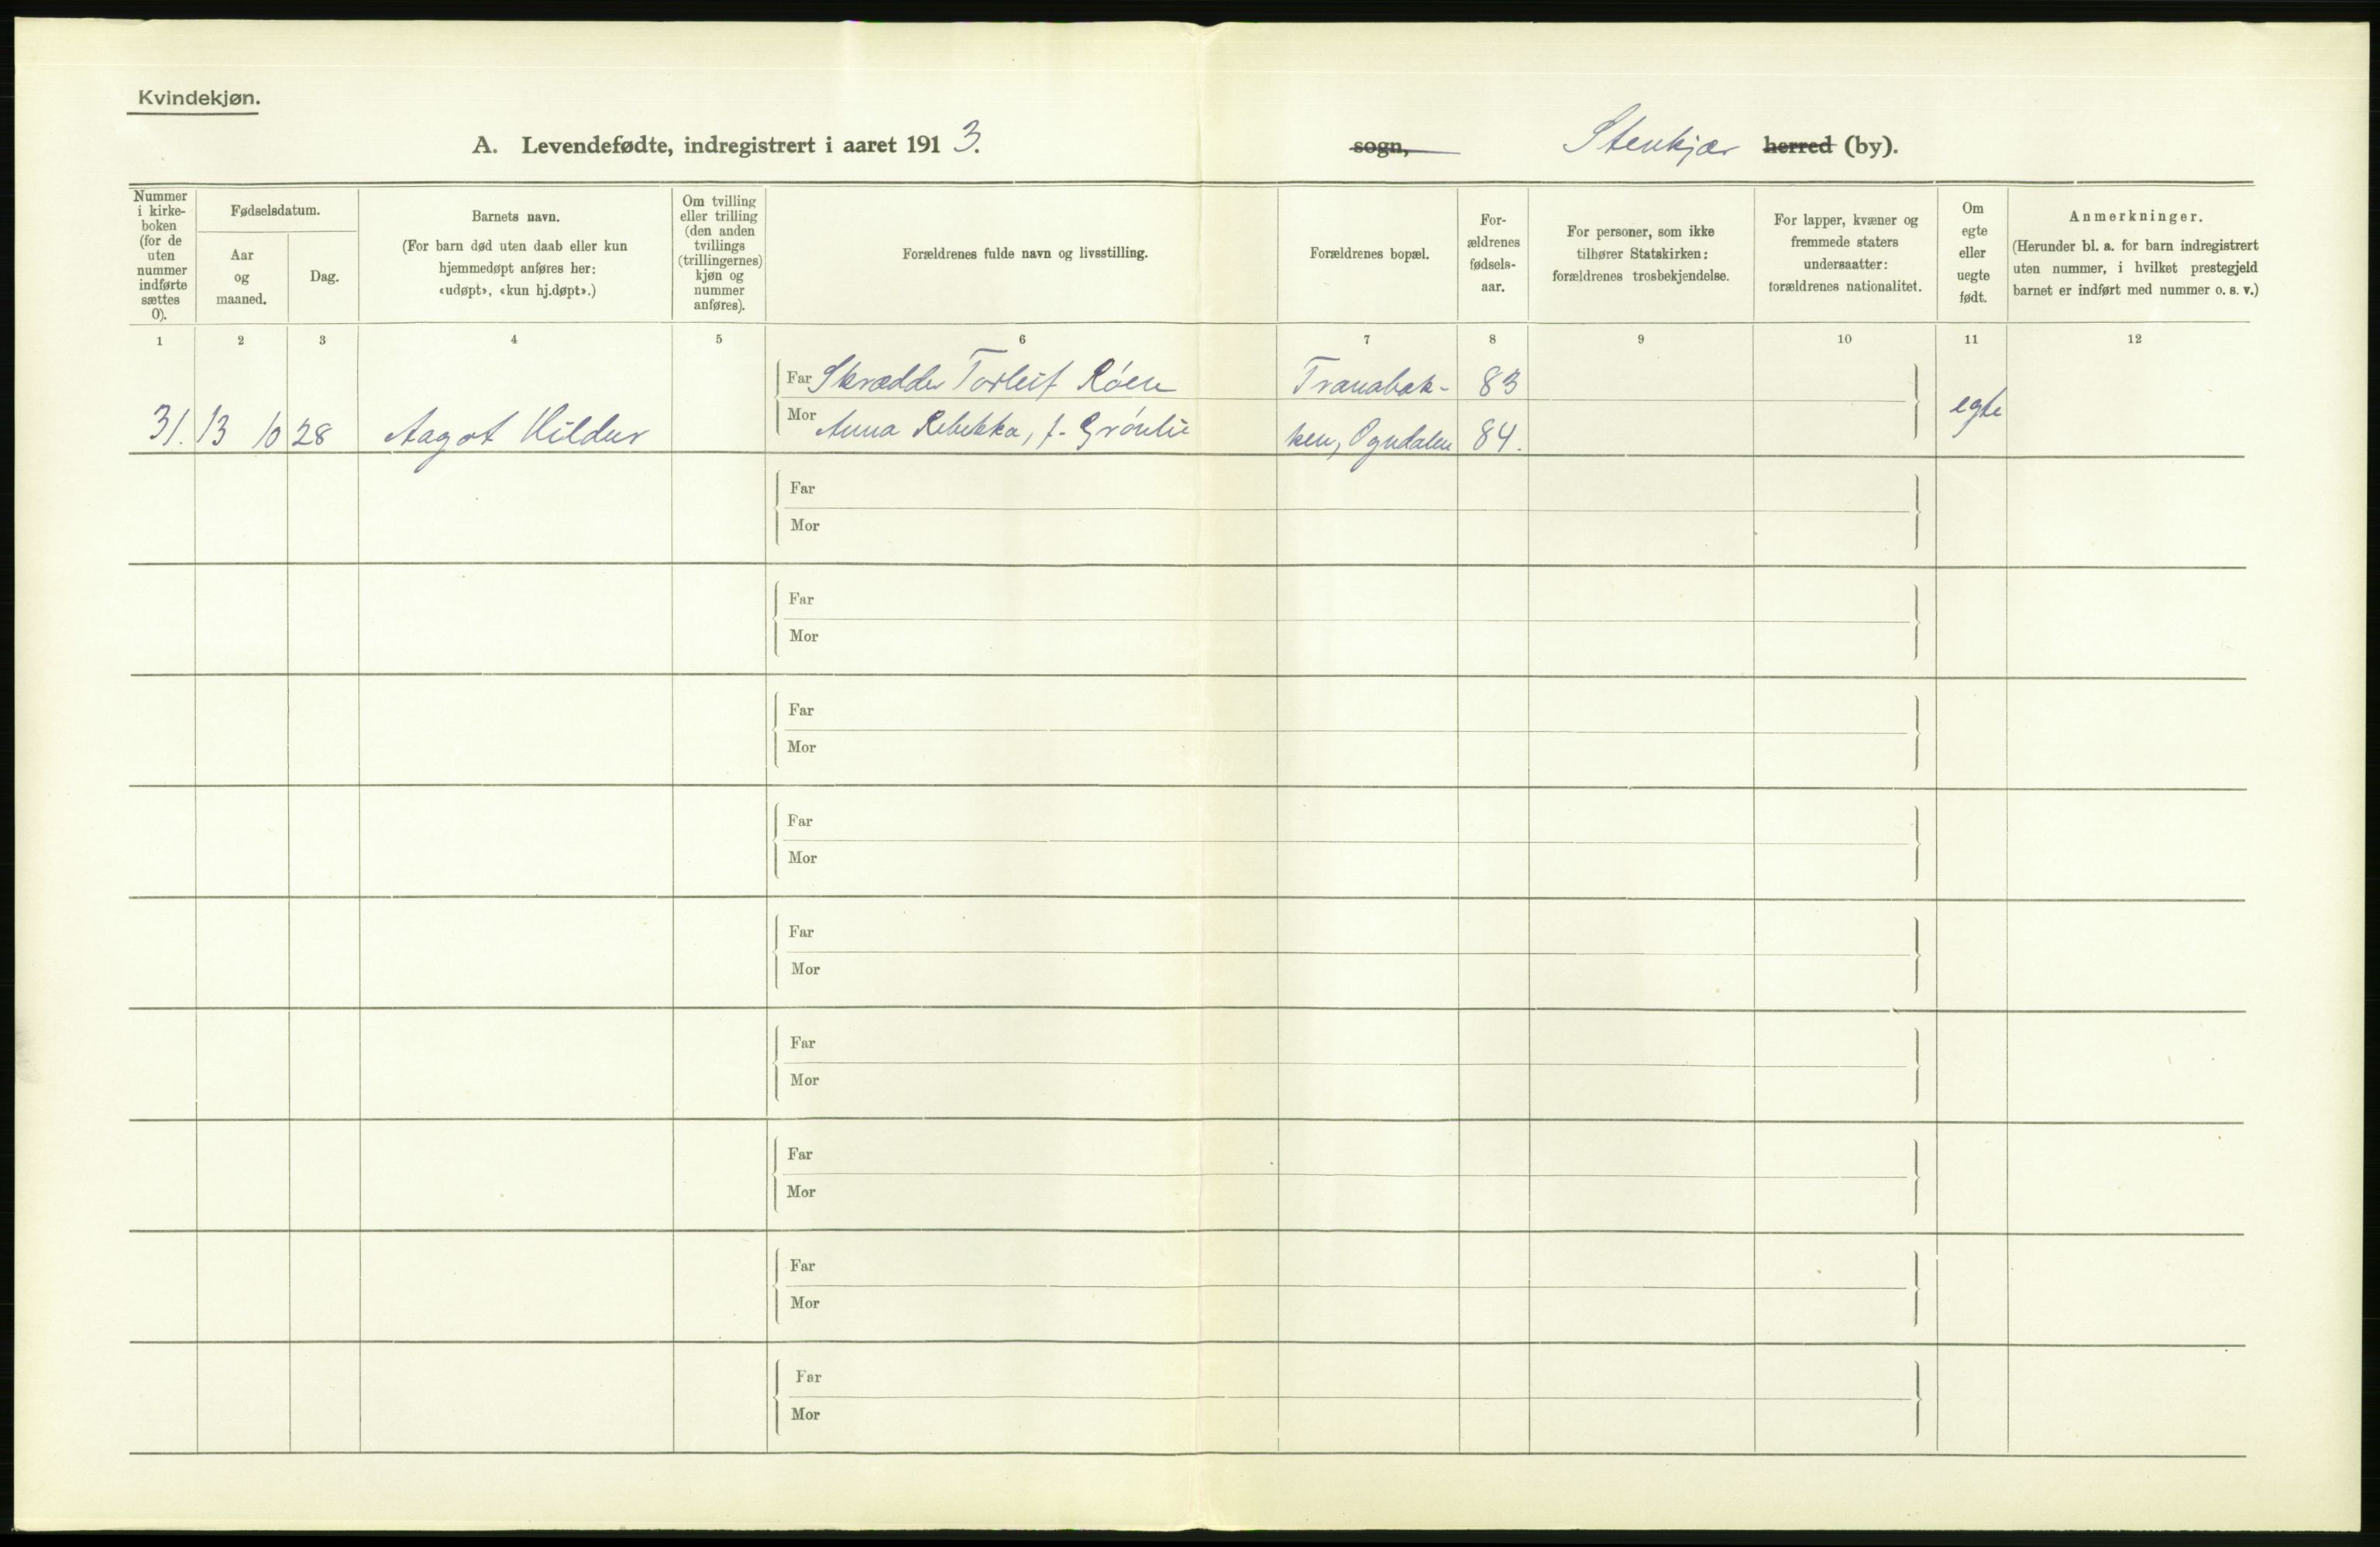 Kvindekjøn.
A. Levendefødte, indregistrert i aaret 1913.
sogn, Stenkjær herred (by).
Nummer i kirke-boken (for de uten nummer indførte sættes 0).
Fødselsdatum.
Aar og maaned.
Dag.
Barnets navn.
(For barn død uten daab eller kun hjemmedøpt anføres her: «udøpt», «kun hj.døpt».)
Om tvilling eller trilling (den anden tvillings (trillingernes) kjøn og nummer anføres).
Forældrenes fulde navn og livsstilling.
Forældrenes bopæl.
For-ældrenes fødsels-aar.
For personer, som ikke tilhører Statskirken: forældrenes trosbekjendelse.
For lapper, kvæner og fremmede staters undersaatter: forældrenes nationalitet.
Om egte eller uegte født.
Anmerkninger.
(Herunder bl. a. for barn indregistrert uten nummer, i hvilket prestegjeld barnet er indført med nummer o. s. v.)
1 2 3 4 5 6 7 8 9 10 11 12
Far Skrædder Torleif Røen Tranabak- 83
31. 13 10 28 Aagot Hildur Mor Anna Rebekka, f. Grønlie ken, Ogndalen 84. egte
Far
Mor
Far
Mor
Far
Mor
Far
Mor
Far
Mor
Far
Mor
Far
Mor
Far
Mor
Far
Mor